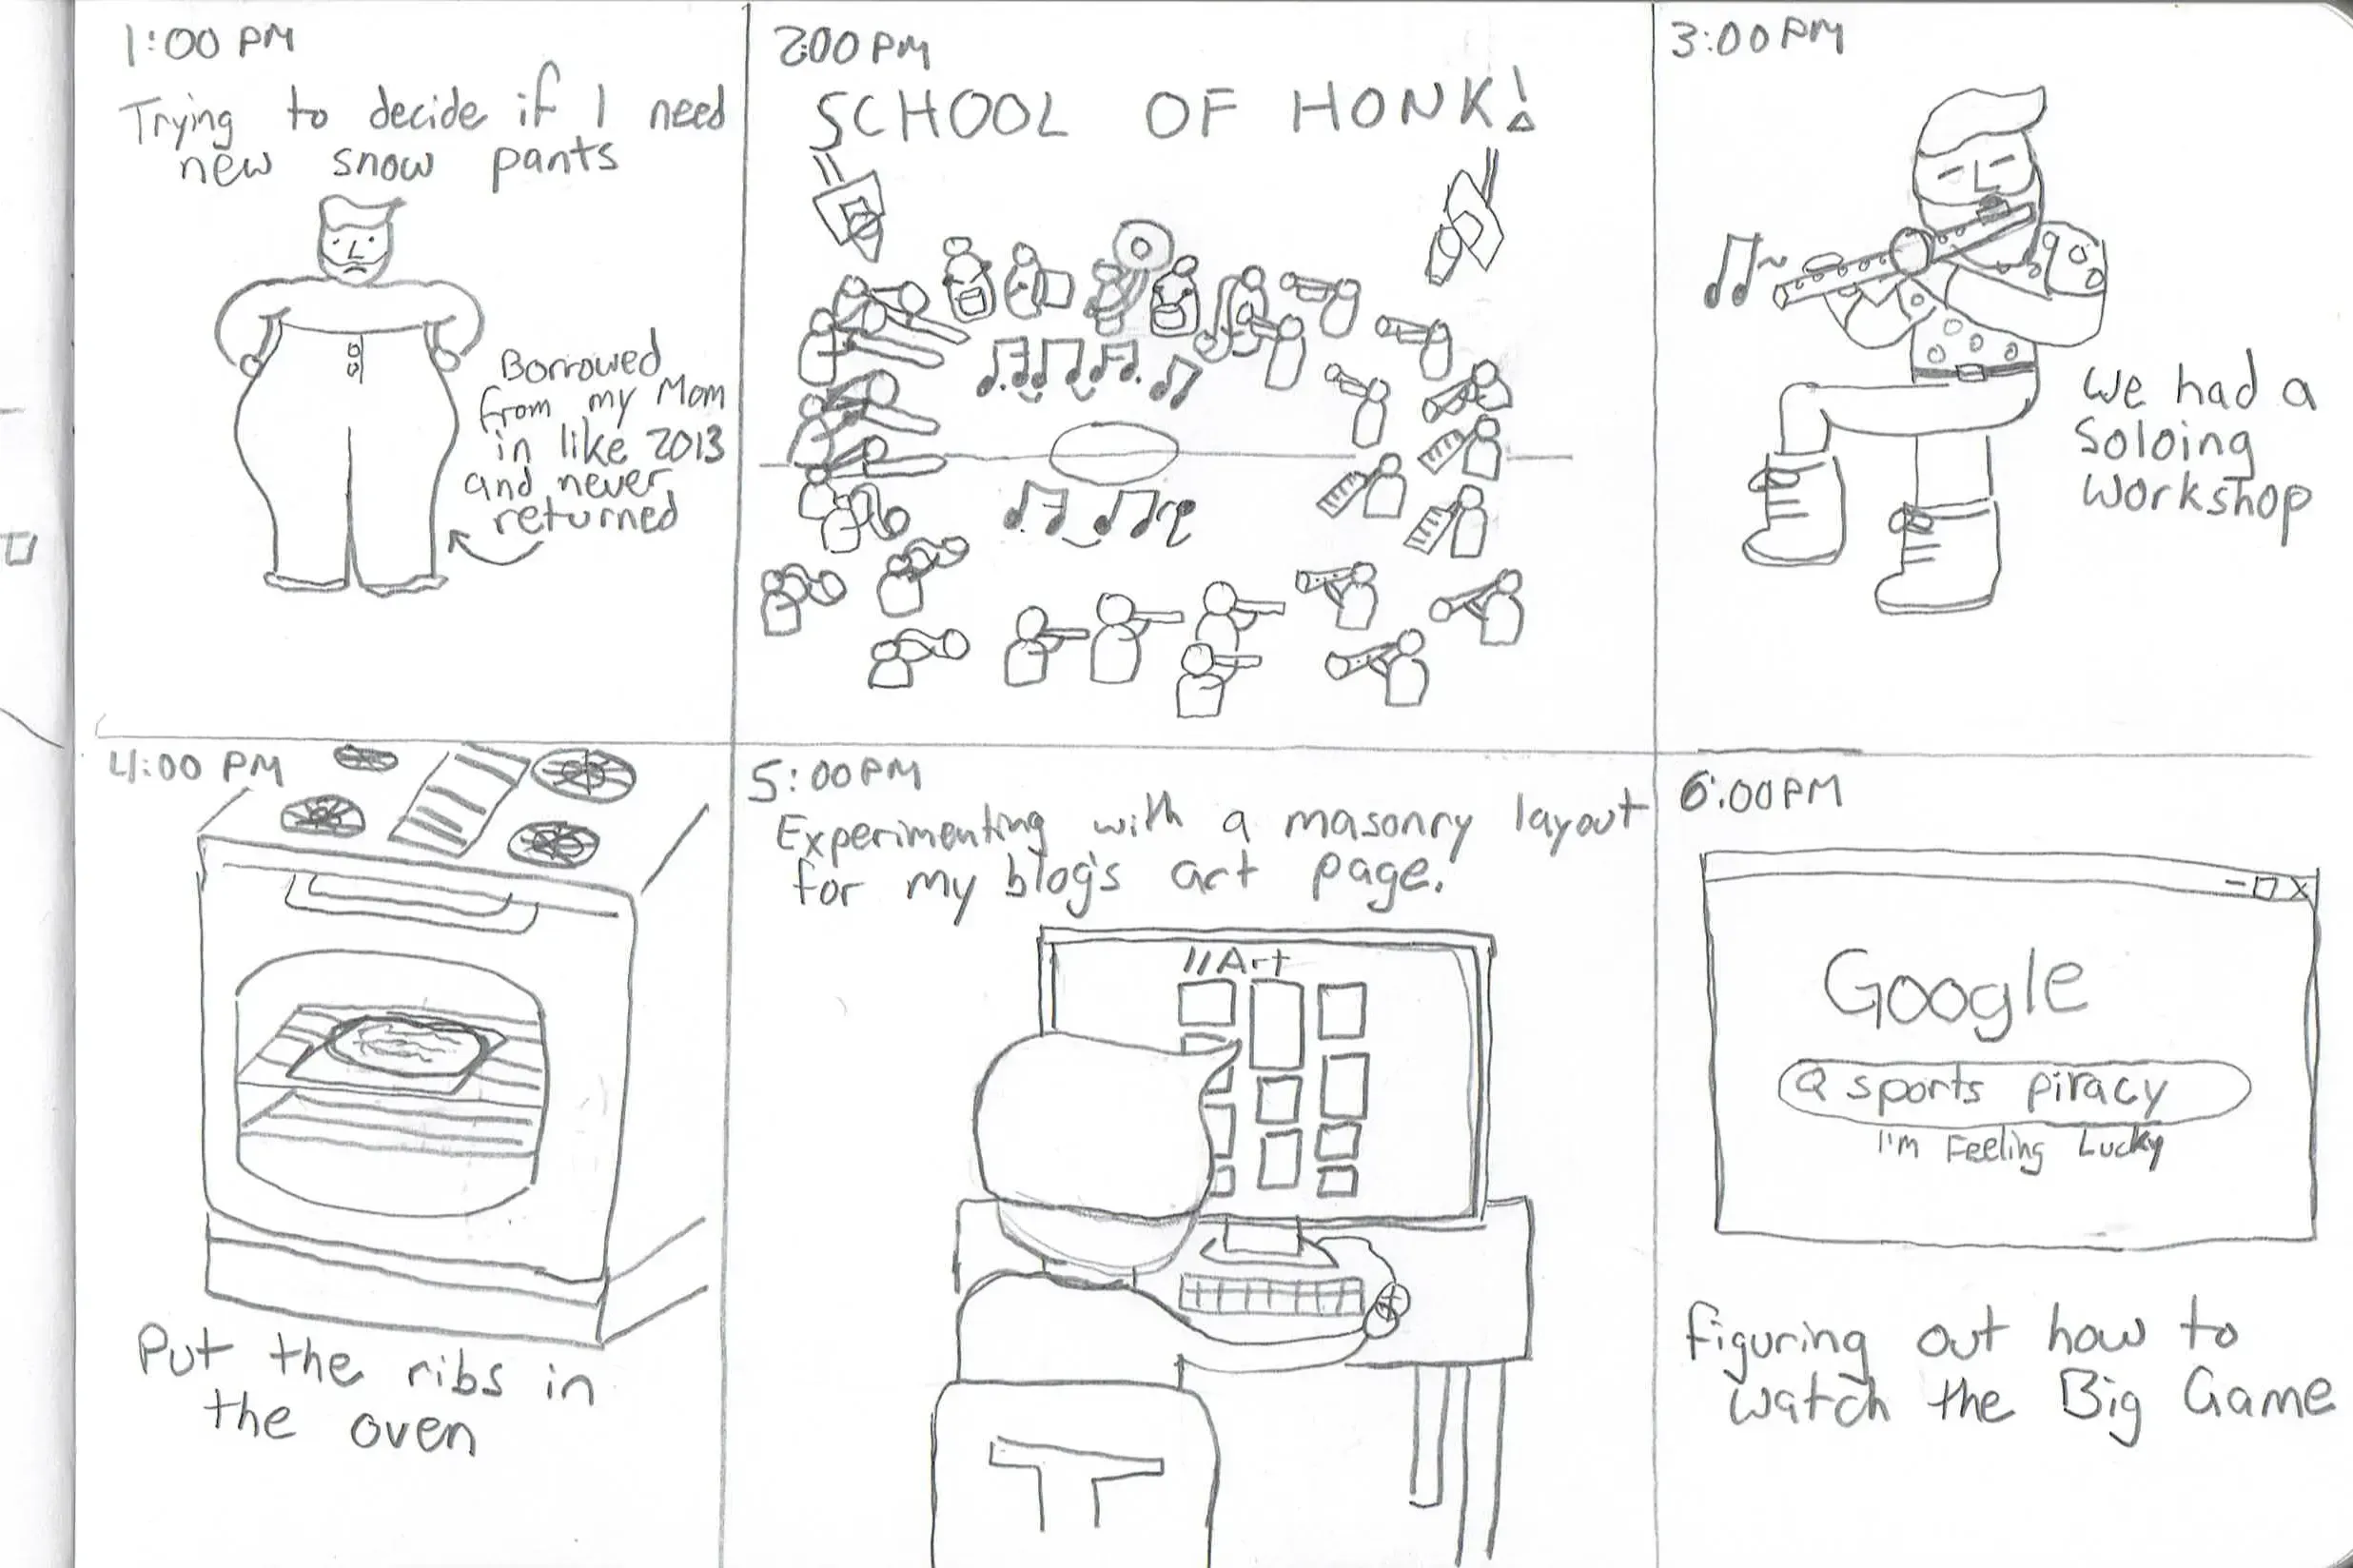 1:00 PM
Trying to decide if I need
new snow pants
Borrowed
from my Mom
in like 2013
and never
returned
2:00 PM
SCHOOL OF HONK!
3:00 PM
We had a
Soloing
workshop
4:00 PM
Put the ribs in
the oven
5:00 PM
Experimenting with a masonry layout
for my blog's art page.
//Art
6:00 PM
Google
sports piracy
I'm Feeling Lucky
figuring out how to
watch the Big Game